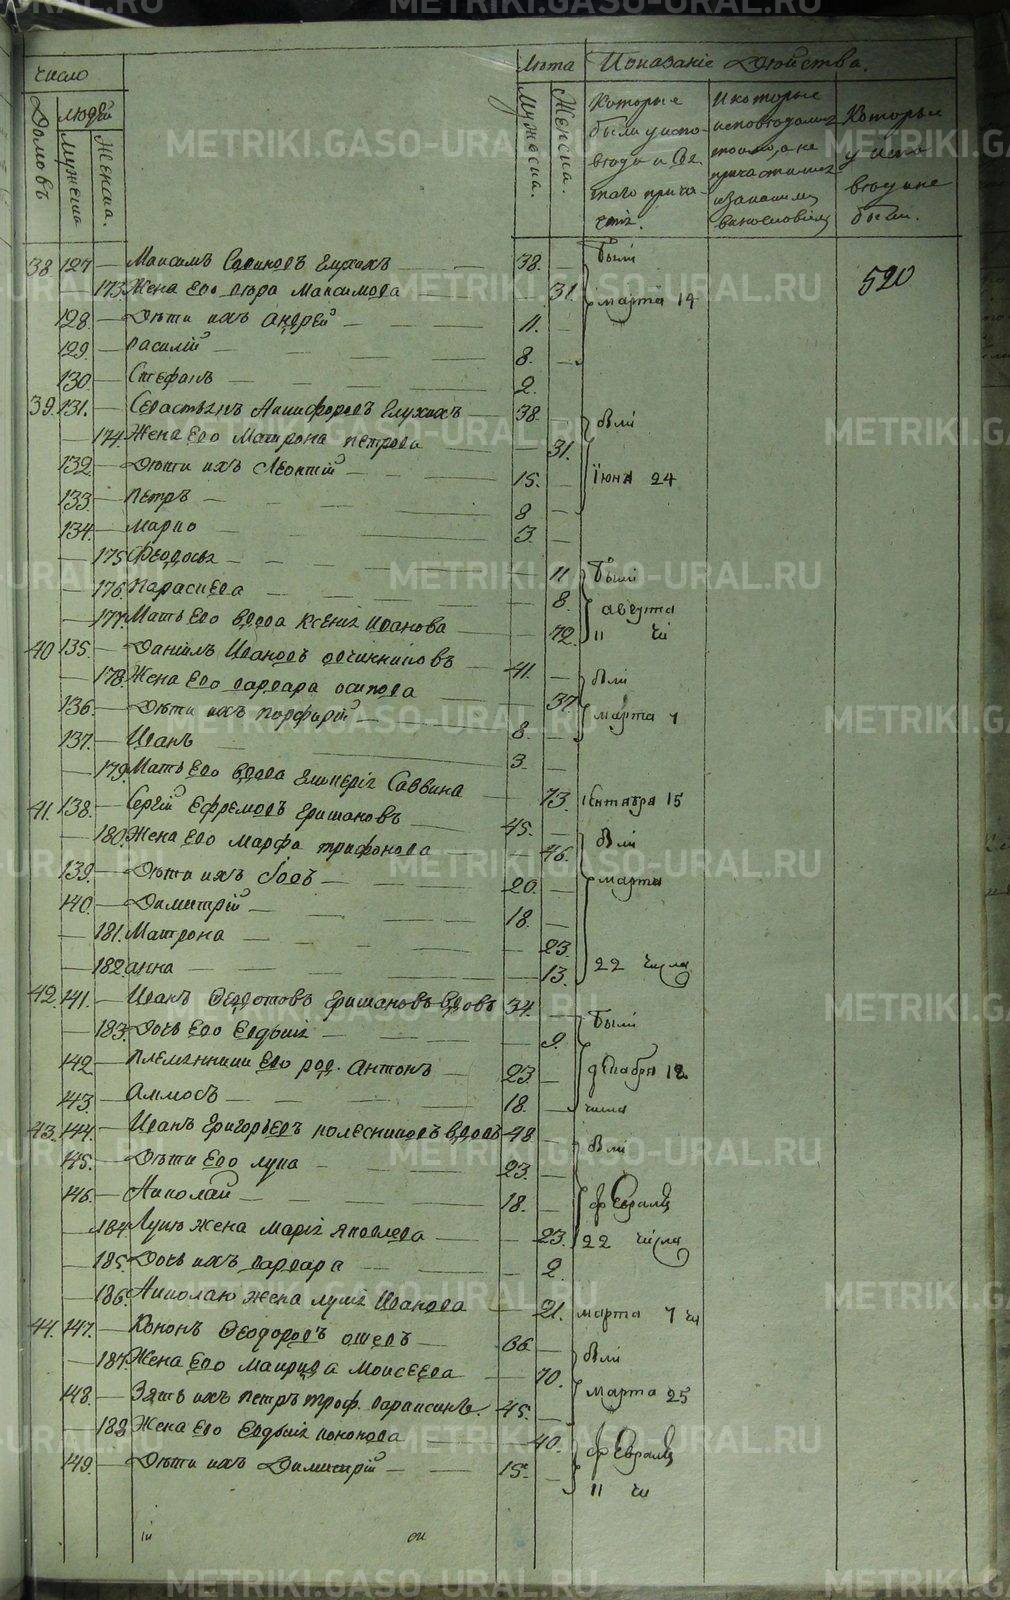 число
Домовъ
людей
Мужеска
Женска.
Лѣта
Показаніе Двойства.
Мужеска.
Женска.
Которые были у исповѣди и Святаго причастія.
И которые исповѣдались токмо, а не причастились и за какимъ винословіемъ
Которые у исповѣди не были.
520
38 127 — Максимъ Савиновъ Глухихъ 38. Были
173 Жена Его Вѣра Максимова 31. марта 14
128 — Дѣти ихъ Андрей — 11.
129. — Василій — 8.
130 — Стефанъ — 2.
39. 131. — Севастьянъ Никифоровъ Глухихъ — 38. — были
174 Жена Его Матрона Петрова — 31.
132 — Дѣти ихъ Леонтій — 15. — Іюня 24
133 — Петръ — 8
134. — Марко — 3.
175 Феодосья — 11 Были
176. Параскева — 8. августа
177. Мать Его вдова Ксенія Иванова — 72. 11 чи
40 135. — Даніилъ Ивановъ Овчинниковъ — 41. — были
178. Жена Его Варвара Осипова — 37 марта 7
136. — Дѣти ихъ Порфирій — 8.
137. — Иванъ — 3.
179. Мать Его вдова Гликерія Саввина — 73. Сентября 15
41. 138. — Сергій Ефремовъ Гришановъ — 45. — были
180. Жена Его Марфа Трифонова — 46. марта
139. — Дѣти ихъ Іовъ — 20.
140. — Димитрій — 18.
181. Матрона — 23.
182. Анна — 13. 22 числа
42 141. — Иванъ Федотовъ Гришановъ вдовъ 34. — Были
183. Дочь Его Евдокія — 9.
142 — Племянники Его род. Антонъ — 23. декабря 12
143. — Аммосъ — 18. — числа
43. 144. — Иванъ Григорьевъ Колесниковъ вдовъ 48 — были
145. — Дѣти Его Лука — 23.
146. — Николай — 18. февраля
184. Луки жена Марія Яковлева — 23. 22 числа
185. Дочь ихъ Варвара — 2.
186. Николаю жена Лукія Иванова — 21. марта 7 чи
44. 147. — Кононъ Феодоровъ Ошевъ — 66. — были
187. Жена Его Мавра Моисеева — 70. марта 25
148. — Зять ихъ Петръ Троф. — 45.
188 Жена Его Евдокія Кононова — 40. февраля
149. — Дѣти ихъ Димитрій — 15. 11 чи
METRIKI.GASO-URAL.RU